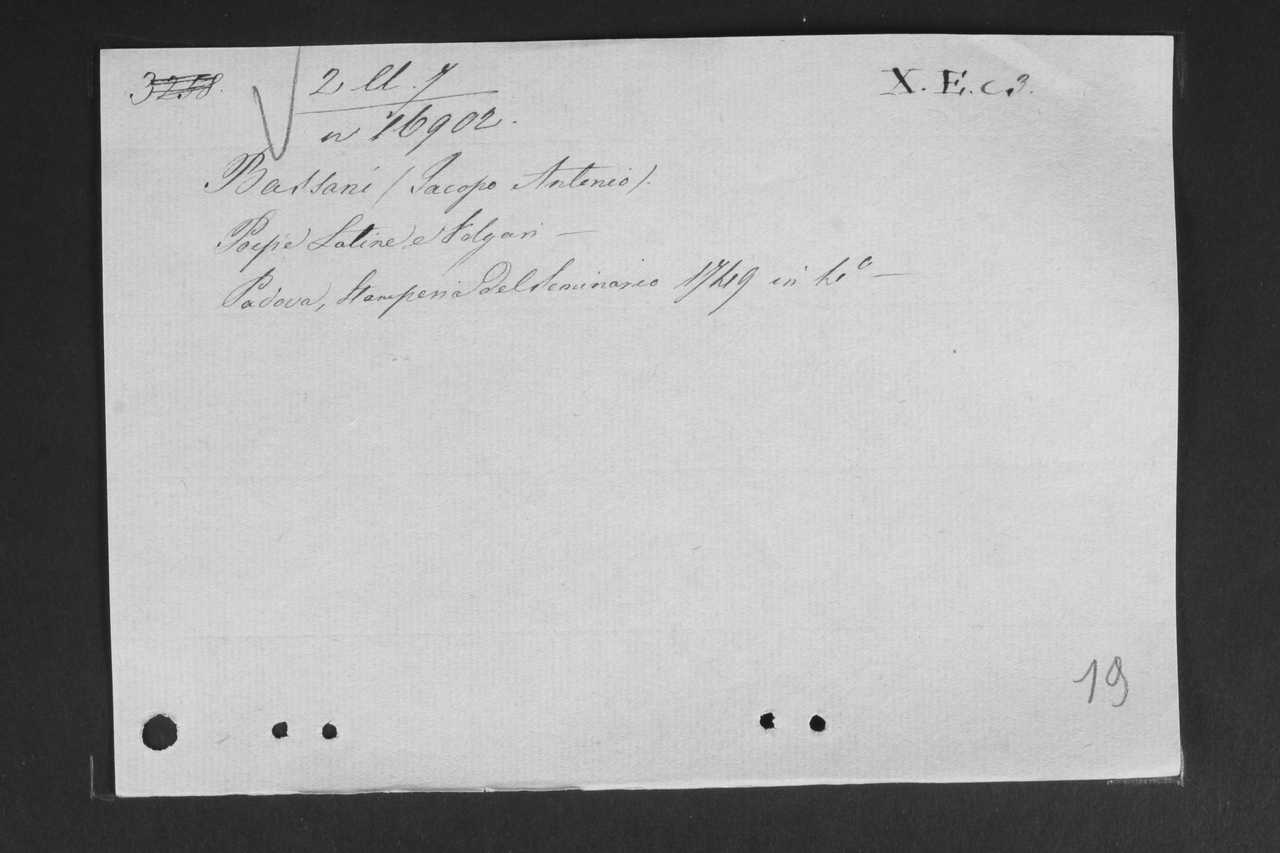 3258.
2 ll. 7
X. E. c. 3.
n 16902.
Bassani (Jacopo Antonio).
Poesie Latine e Volgari —
Padova, Stamperia del Seminario 1749 in 4.º —
19